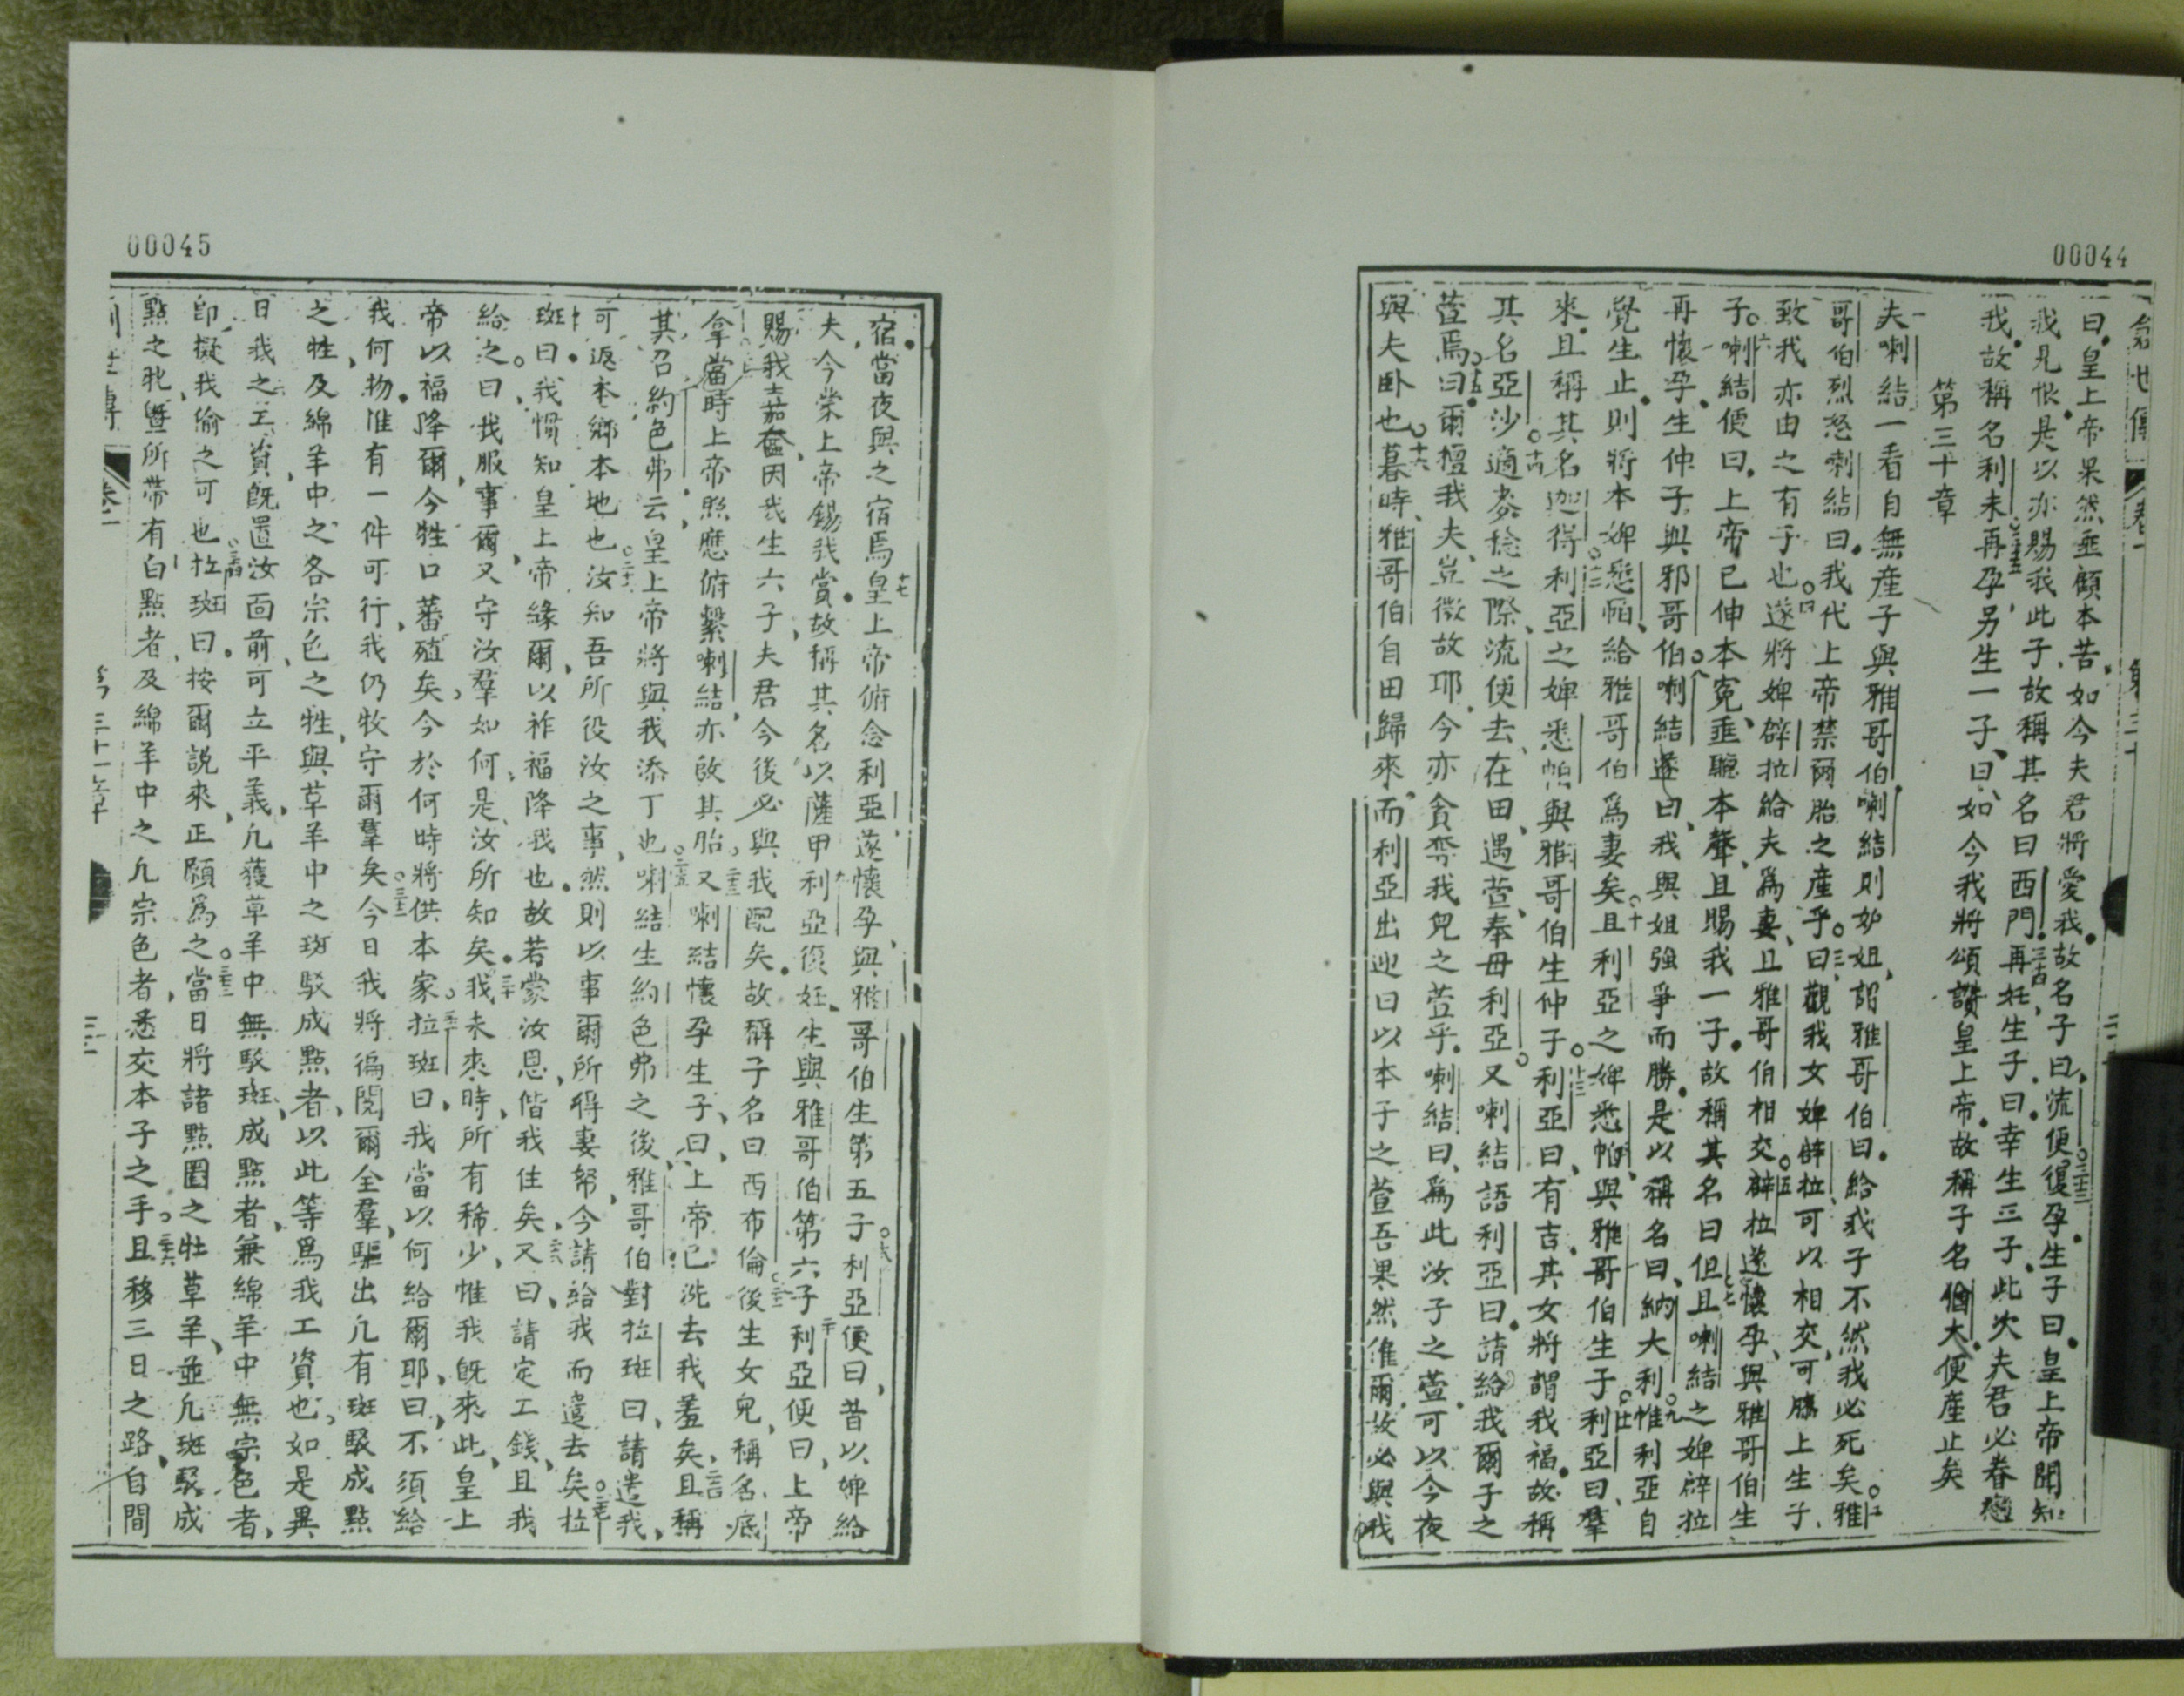 00044
曰皇上帝果然垂顧本苦如今夫君將愛我故名子曰流便復孕生子曰皇上帝聞知
我見恨是以亦賜我此子故稱其名曰西門再妊生子曰幸生三子此次夫君必眷戀
我故稱名利未再孕另生一子曰如今我將頌讚皇上帝故稱子名偤大便產止矣
第三十章
夫喇結一看自無產子與雅哥伯喇結則妒姐謂雅哥伯曰給我子不然我必死矣雅
哥伯烈怒喇結曰我代上帝禁爾胎之產乎曰觀我女婢辟拉可以相交可膝上生子
致我亦由之有子也遂將婢辟拉給夫爲妻且雅哥伯相交辟拉遂懷孕與雅哥伯生
子喇結便曰上帝已伸本寃垂聽本聲且賜我一子故稱其名曰但且喇結之婢辟拉
再懷孕生仲子與邪哥伯喇結遂曰我與姐強爭而勝是以稱名曰納大利惟利亞自
覺生止則將本婢悉帕給雅哥伯爲妻矣且利亞之婢悉帕與雅哥伯生子利亞曰羣
來且稱其名迦得利亞之婢悉帕與雅哥伯生仲子利亞曰有吉其女將謂我福故稱
其名亞沙適麥稔之際流便去在田遇萱奉母利亞又喇結語利亞曰請給我爾子之
萱焉曰爾擅我夫豈微故耶今亦貪奪我兒之萱乎喇結曰爲此汝子之萱可以今夜
與夫卧也暮時雅哥伯自田歸來而利亞出迎曰以本子之萱吾果然僱爾故必與我
00045
宿當夜與之宿焉皇上帝俯念利亞遂懷孕與雅哥伯生第五子利亞便曰昔以婢給
夫今蒙上帝錫我賞故稱其名以薩甲利亞復妊生與雅哥伯第六子利亞便曰上帝
賜我嘉奩因我生六子夫君今後必與我配矣故稱子名曰西布倫後生女兒稱名底
拿當時上帝照應俯繫喇結亦啟其胎又喇結懷孕生子曰上帝已洗去我羞矣且稱
其召約色弗云皇上帝將與我添丁也喇結生約色弗之後雅哥伯對拉班曰請遣我
可返本鄉本地也汝知吾所役汝之事然則以事爾所得妻帑今請給我而遣去矣拉
斑曰我慣知皇上帝緣爾以祚福降我也故若蒙汝恩偕我住矣又曰請定工錢且我
給之曰我服事爾又守汝羣如何是汝所知矣我未來時所有稀少惟我旣來此皇上
帝以福降爾今牲口蕃殖矣今於何時將供本家拉斑曰我當以何給爾耶曰不須給
我何物惟有一件可行我仍牧守爾羣矣今日我將徧閱爾全羣驅出凢有斑駁成點
之牲及綿羊中之各宗色之牲與草羊中之斑駁成點者以此等爲我工資也如是異
日我之工資旣置汝面前可立平義凢獲草羊中無駁斑成點者兼綿羊中無宗色者
即擬我偷之可也拉斑曰按爾說來正願爲之當日將諸點圈之牡草羊並凢斑駁成
點之牝曁所帶有白點者及綿羊中之凢宗色者悉交本子之手且移三日之路自間
卷一